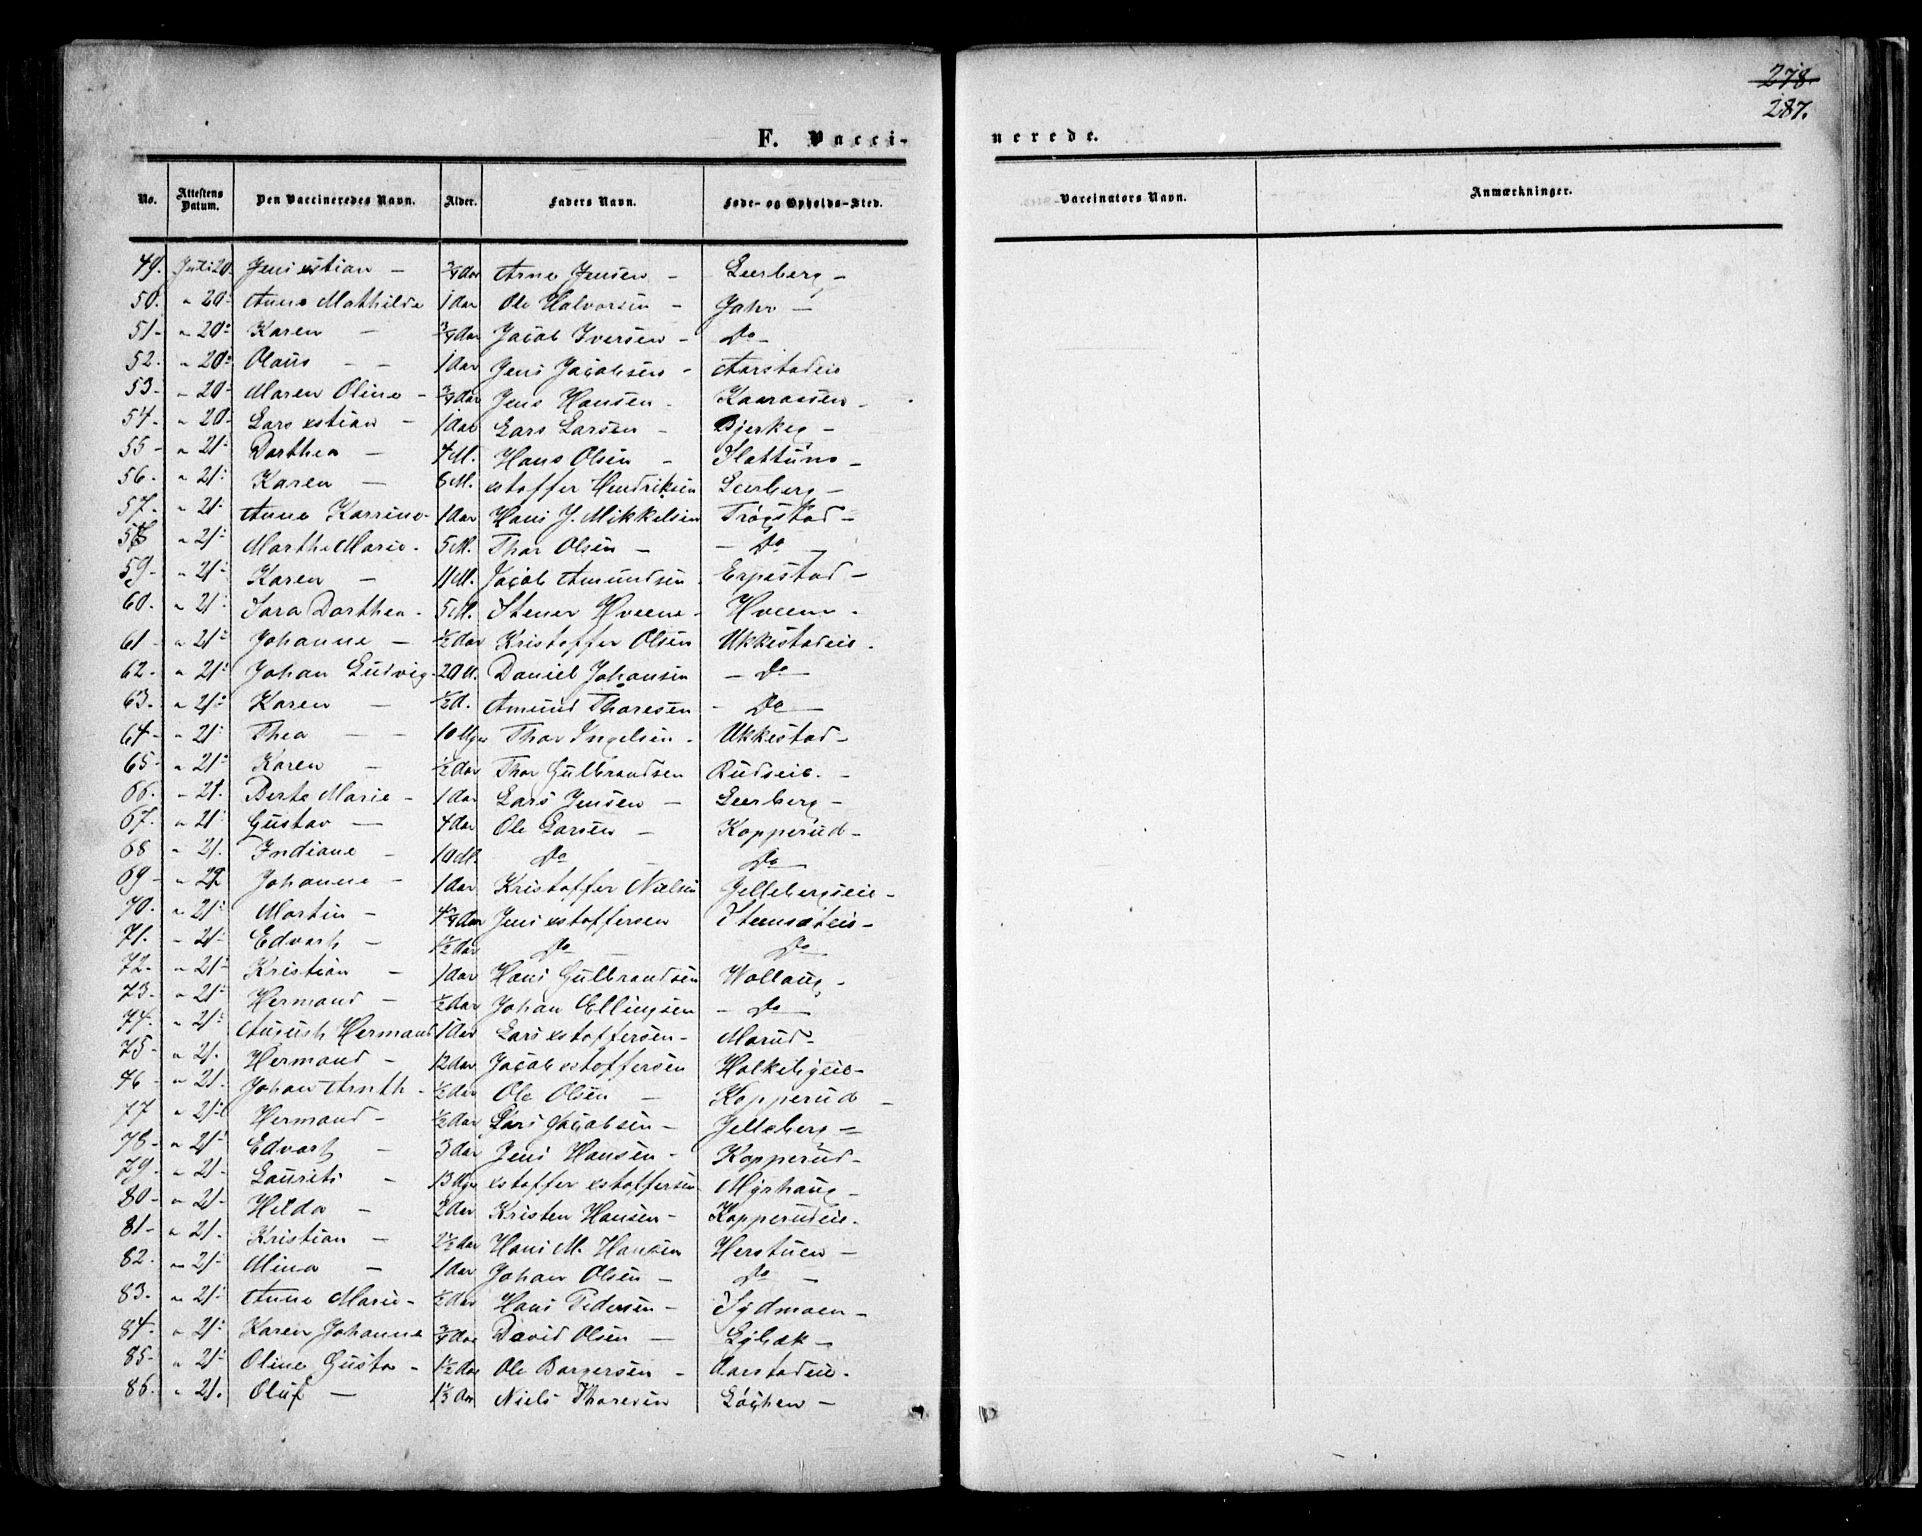 278.
287.
F. Vacci- nerede.
No. Attestens Datum. Den Vaccineredes Navn. Alder. Faders Navn. Føde- og Opholds-Sted. Vaccinators Navn. Anmærkninger.
49. Juli 20. Jens xstian - 3/4 Aar Arne Jensen - Leerberg -
50. " 20. Anne Mathilde 1 Aar Ole Halvorsen - Gahr -
51. " 20. Karen - 3/4 Aar Jacob Iversen - Do -
52. " 20. Olaus - - 1 Aar Jens Jacobsen - Aarstadeie
53. " 20. Maren Oline - 3/4 Aar Jens Hansen -
54. " 20. Lars xstian - 1 Aar Lars Larsen - Bjerkeg -
55. " 21. Dorthea - 4 M. Hans Olsen - Slattum -
56. " 21. Karen - 8 M. xstoffer Hendriksen Leerberg -
57. " 21. Anne Karrine - 1 Aar Hans J. Mikkelsen Trøgstad -
58. " 21. Marthe Marie - 5 M. Thor Olsen - - Do -
59. " 21. Karen - 11 M. Jacob Amundsen - Erpestad -
60. " 21. Sara Dorthea - 5 M. Stener Hveene - Hveem -
61. " 21. Johanne - 1/2 Aar Kristoffer Olsen Ukkestadeie -
62. " 21. Johan Ludvig - 20 U. Daniel Johansen - Do -
63. " 21. Karen - 1/2 A. Amund Thoresen - Do -
64. " 21. Thea - - 10 Uger Thor Ingelsen - Ukkestad -
65. " 21. Karen - 1/2 Aar Thor Gulbrandsen Rudseie. -
66. " 21. Berte Marie - 1 Aar Lars Jensen - Leerberg -
67. " 21. Gustav - 4 Aar Ole Larsen - Kopperud -
68 " 21. Indiane - 10 M. Do - Do -
69 - " 22 Johanne - 1 Aar Kristoffer Nielsen Gellebergseie -
70. " 21. Martin - Jens xstoffersen Stensateie -
71. " 21. Edvart - 1 1/2 Aar Do - Do -
72. " 21. Kristian - 1 Aar Hans Gulbrandsen Wollaug -
73. " 21. Hermand - 1/2 Aar Johan Ellingsen - Do -
74. " 21. August Hermand 1 Aar Lars xstoffersen - Marud -
75 - " 21. Hermand - 12 Aar Jacob xstoffersen Holkeligeie -
76 - " 21. Johan Arnth - 1/2 Aar Ole Olsen - Kopperud -
77 " 21. Hermand - 1/2 Aar Lars Jacobsen - Jelleberg -
78 - " 21. Edvart - 3 Aar Jens Hansen - Kopperud -
79. " 21. Laurits - 13 Uger xstoffer xstoffersen Myrhaug -
80 - " 21. Hilda - 2 Aar Kristen Hansen - Kopperudeie.
81 - " 21. Kristian - 2 1/2 Aar Hans M. Hansen Herstuen -
82. " 21. Mina - 1 Aar Johan Olsen - Do -
83. " 21. Anne Marie - 1/2 Aar Hans Pedersen - Sydmoen -
84. " 21. Karen Johanne 3/4 Aar David Olsen - Lybæk -
85 - " 21. Oline Gusta - 1 1/2 Aar Ole Borgersen - Aarstadeie.
86. " 21. Oluf - 1 1/3 Aar Niels Thoresen Løchen -